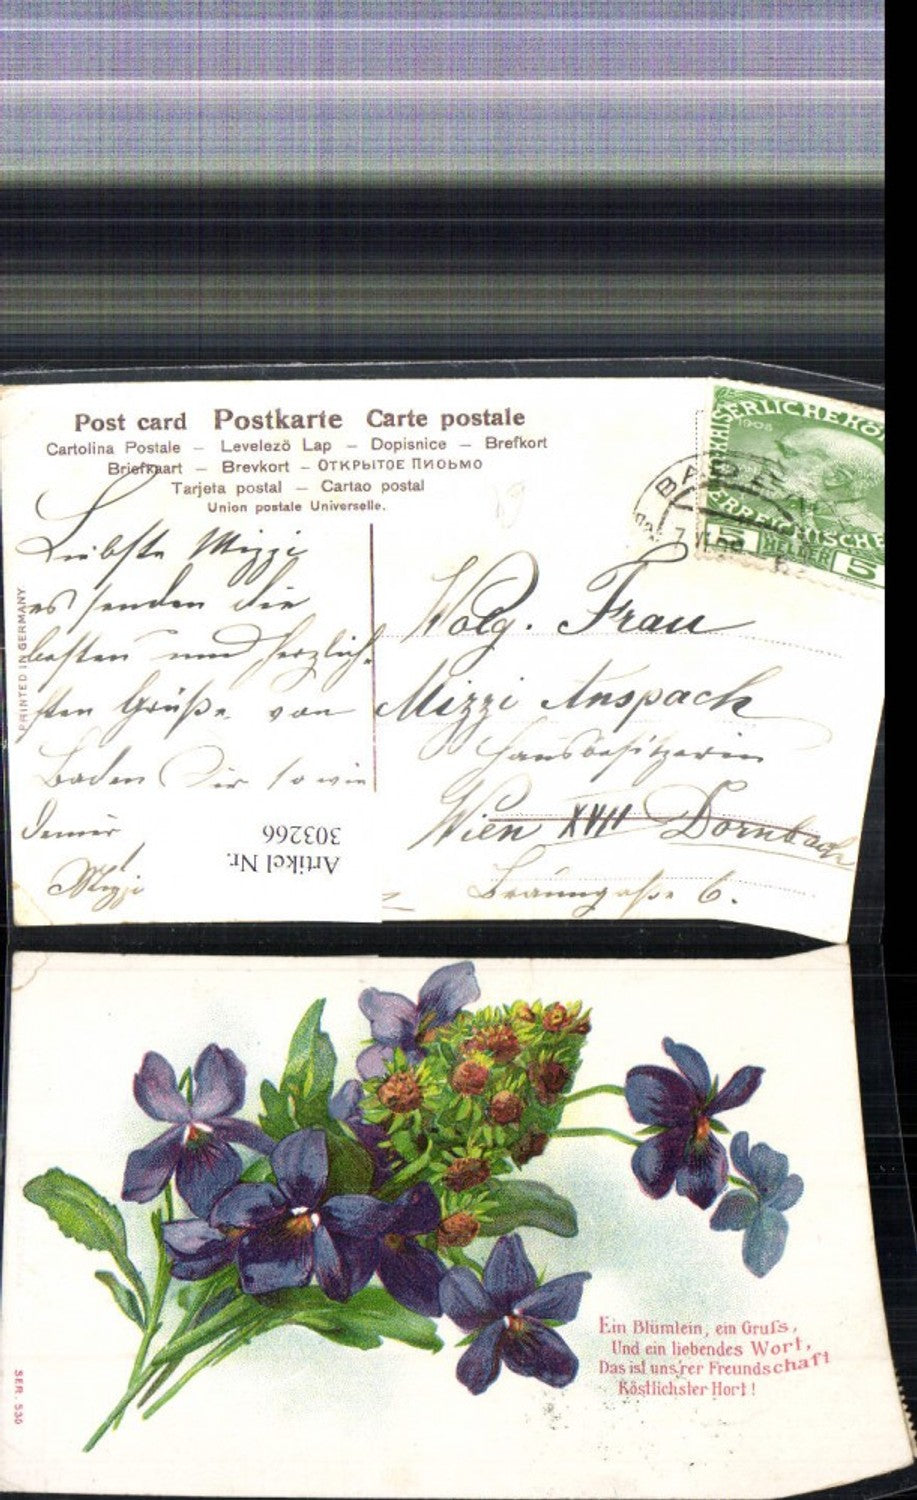 Post card Postkarte Carte postale
Cartolina Postale — Levelezö Lap — Dopisnice — Brefkort
Briefkaart — Brevkort — ОТКРЫТОЕ ПИСЬМО
Tarjeta postal — Cartao postal
Union postale Universelle.
PRINTED IN GERMANY
KAISERLICHE KÖ
1908
ERREICHISCHE
5 HELLER 5
BADEN
Liebste Mizzi
es senden die
besten und herzlich-
sten Grüße von
Baden Dir sowie
Deiner
Mizzi
Wolg. Frau
Mizzi Anspach
Hausbesitzerin
Wien XVII Dornbach
Braungasse 6.
Artikel Nr.
303266
Ein Blümlein, ein Gruss,
Und ein liebendes Wort,
Das ist uns'rer Freundschaft
Köstlichster Hort!
SER. 530